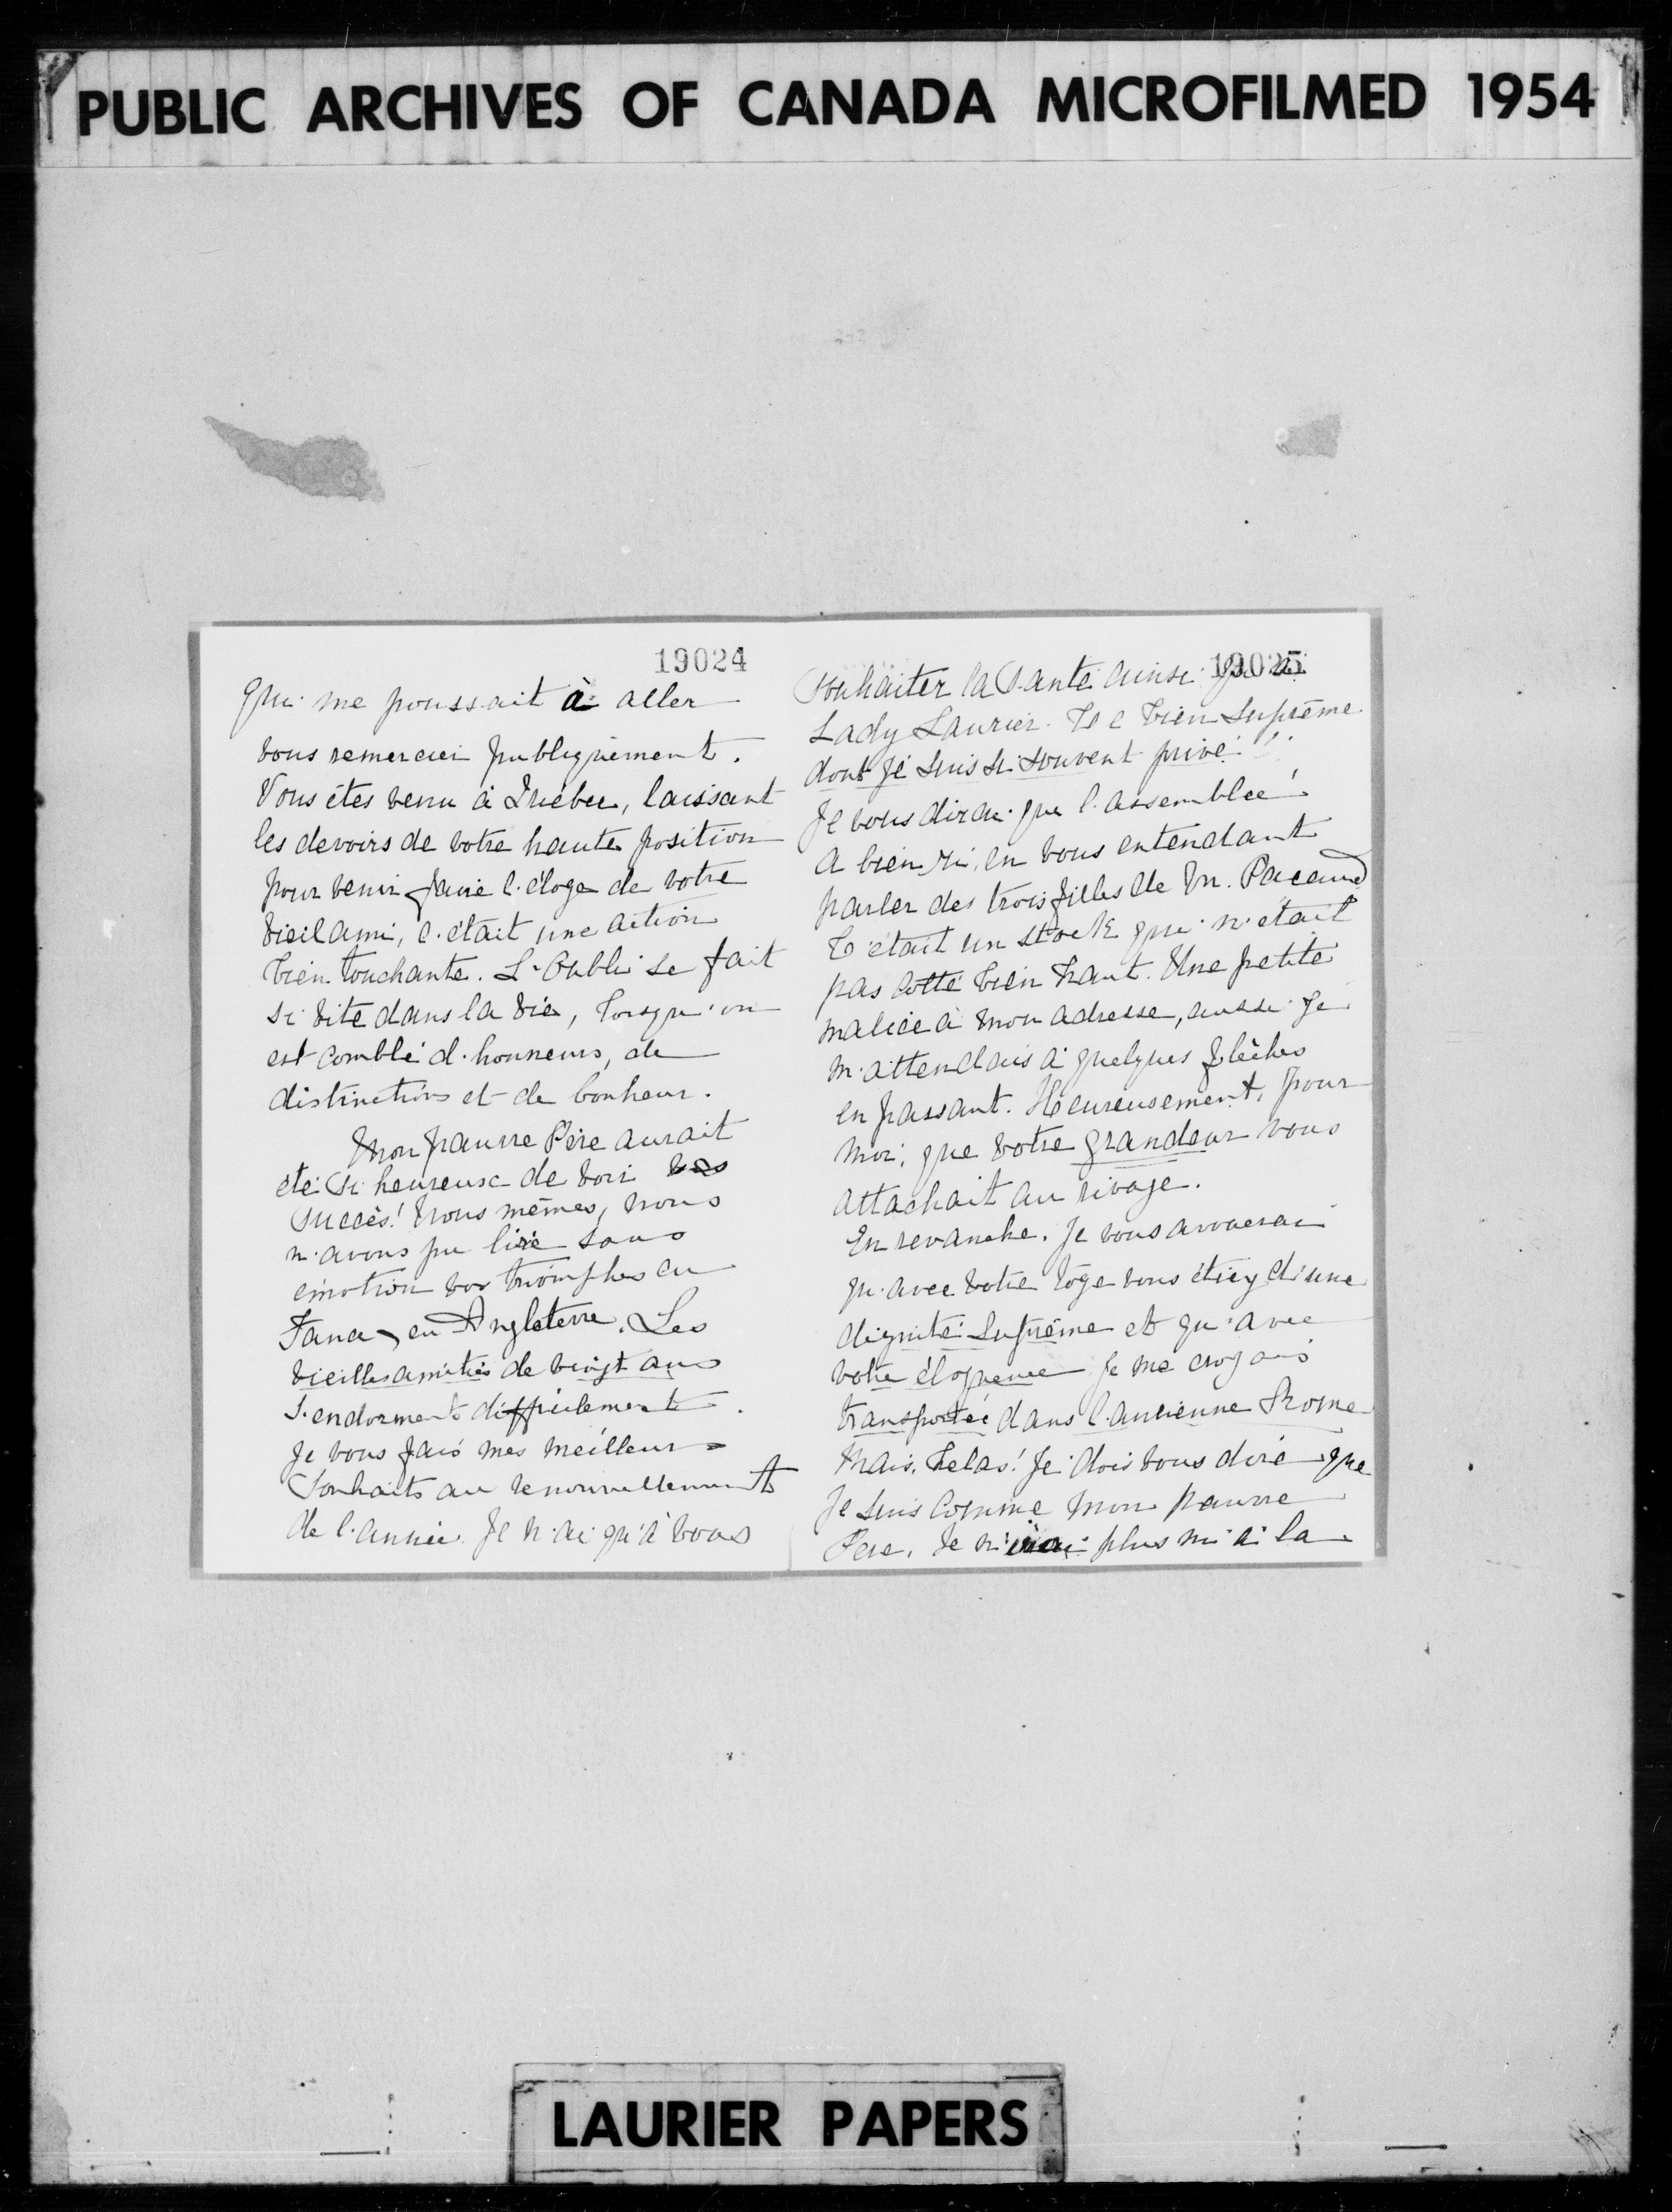 PUBLIC ARCHIVES OF CANADA MICROFILMED 1954
19024
qui me poussait à aller
vous remercier publiquement.
Vous êtes venu à Québec, laissant
les devoirs de votre haute position
pour venir faire l'éloge de votre
vieil ami, c'était une action
bien touchante. L'Oubli se fait
si vite dans la vie, lorsqu'on
est comblé d'honneurs, de
distinctions et de bonheur.
Mon pauvre Père aurait
été si heureux de voir vos
succès! Nous mêmes, nous
n'avons pu lire sans
émotion vos triomphes en
France, en Angleterre. Les
vieilles amitiés de vingt ans
s'endorment difficilement.
Je vous fais mes meilleurs
souhaits au renouvellement
de l'année. Je n'ai qu'à vous
19025
souhaiter la santé ainsi qu'à
Lady Laurier. Ce bien suprême
dont je suis si souvent privé!!
Je vous dirai que l'assemblée
a bien ri, en vous entendant
parler des trois filles de Mr. Pacaud
C'était un stock qui n'était
pas cotté bien haut. Une petite
malice à mon adresse, aussi je
m'attendais à quelques flèches
en passant. Heureusement, pour
moi, que votre grandeur vous
attachait au rivage.
En revanche, je vous avouerai
qu'avec votre toge vous étiez d'une
dignité suprême et qu'avec
votre éloquence je me croyais
transportée dans l'ancienne Rome
Mais, hélas! Je dois vous dire que
je suis comme mon pauvre
Père, Je n'irai plus ni à la
LAURIER PAPERS